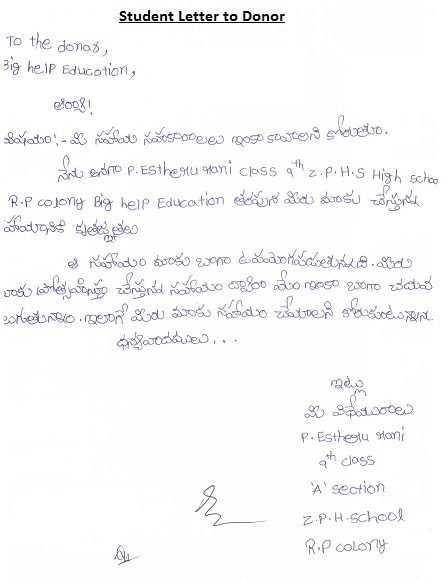 Student Letter to Donor
To the donar,
Big help Education,
విషయం:- మీ సహాయ సహకారాలు ఇంకా కావాలని కోరుతూ.
నేను అనగా P. Estheru rani class 9th Z.P.H.S High schoo
R.P colony Big help Education తరపున మీరు మాకు చేస్తున్న
కృతజ్ఞతలు
ఆ సహాయం మాకు బాగా ఉపయోగపడుతున్నది. మీరు
చేస్తున్న సహాయం ద్వారా మేం ఇంకా బాగా చదువ
ఇలాగే మీరు మాకు సహాయం చేయాలని కోరుకుంటున్నాను.
ధన్యవాదములు...
ఇట్లు
మీ విధేయురాలు
P. Estheru rani
9th class
'A' section
Z.P.H. school
R.P colony